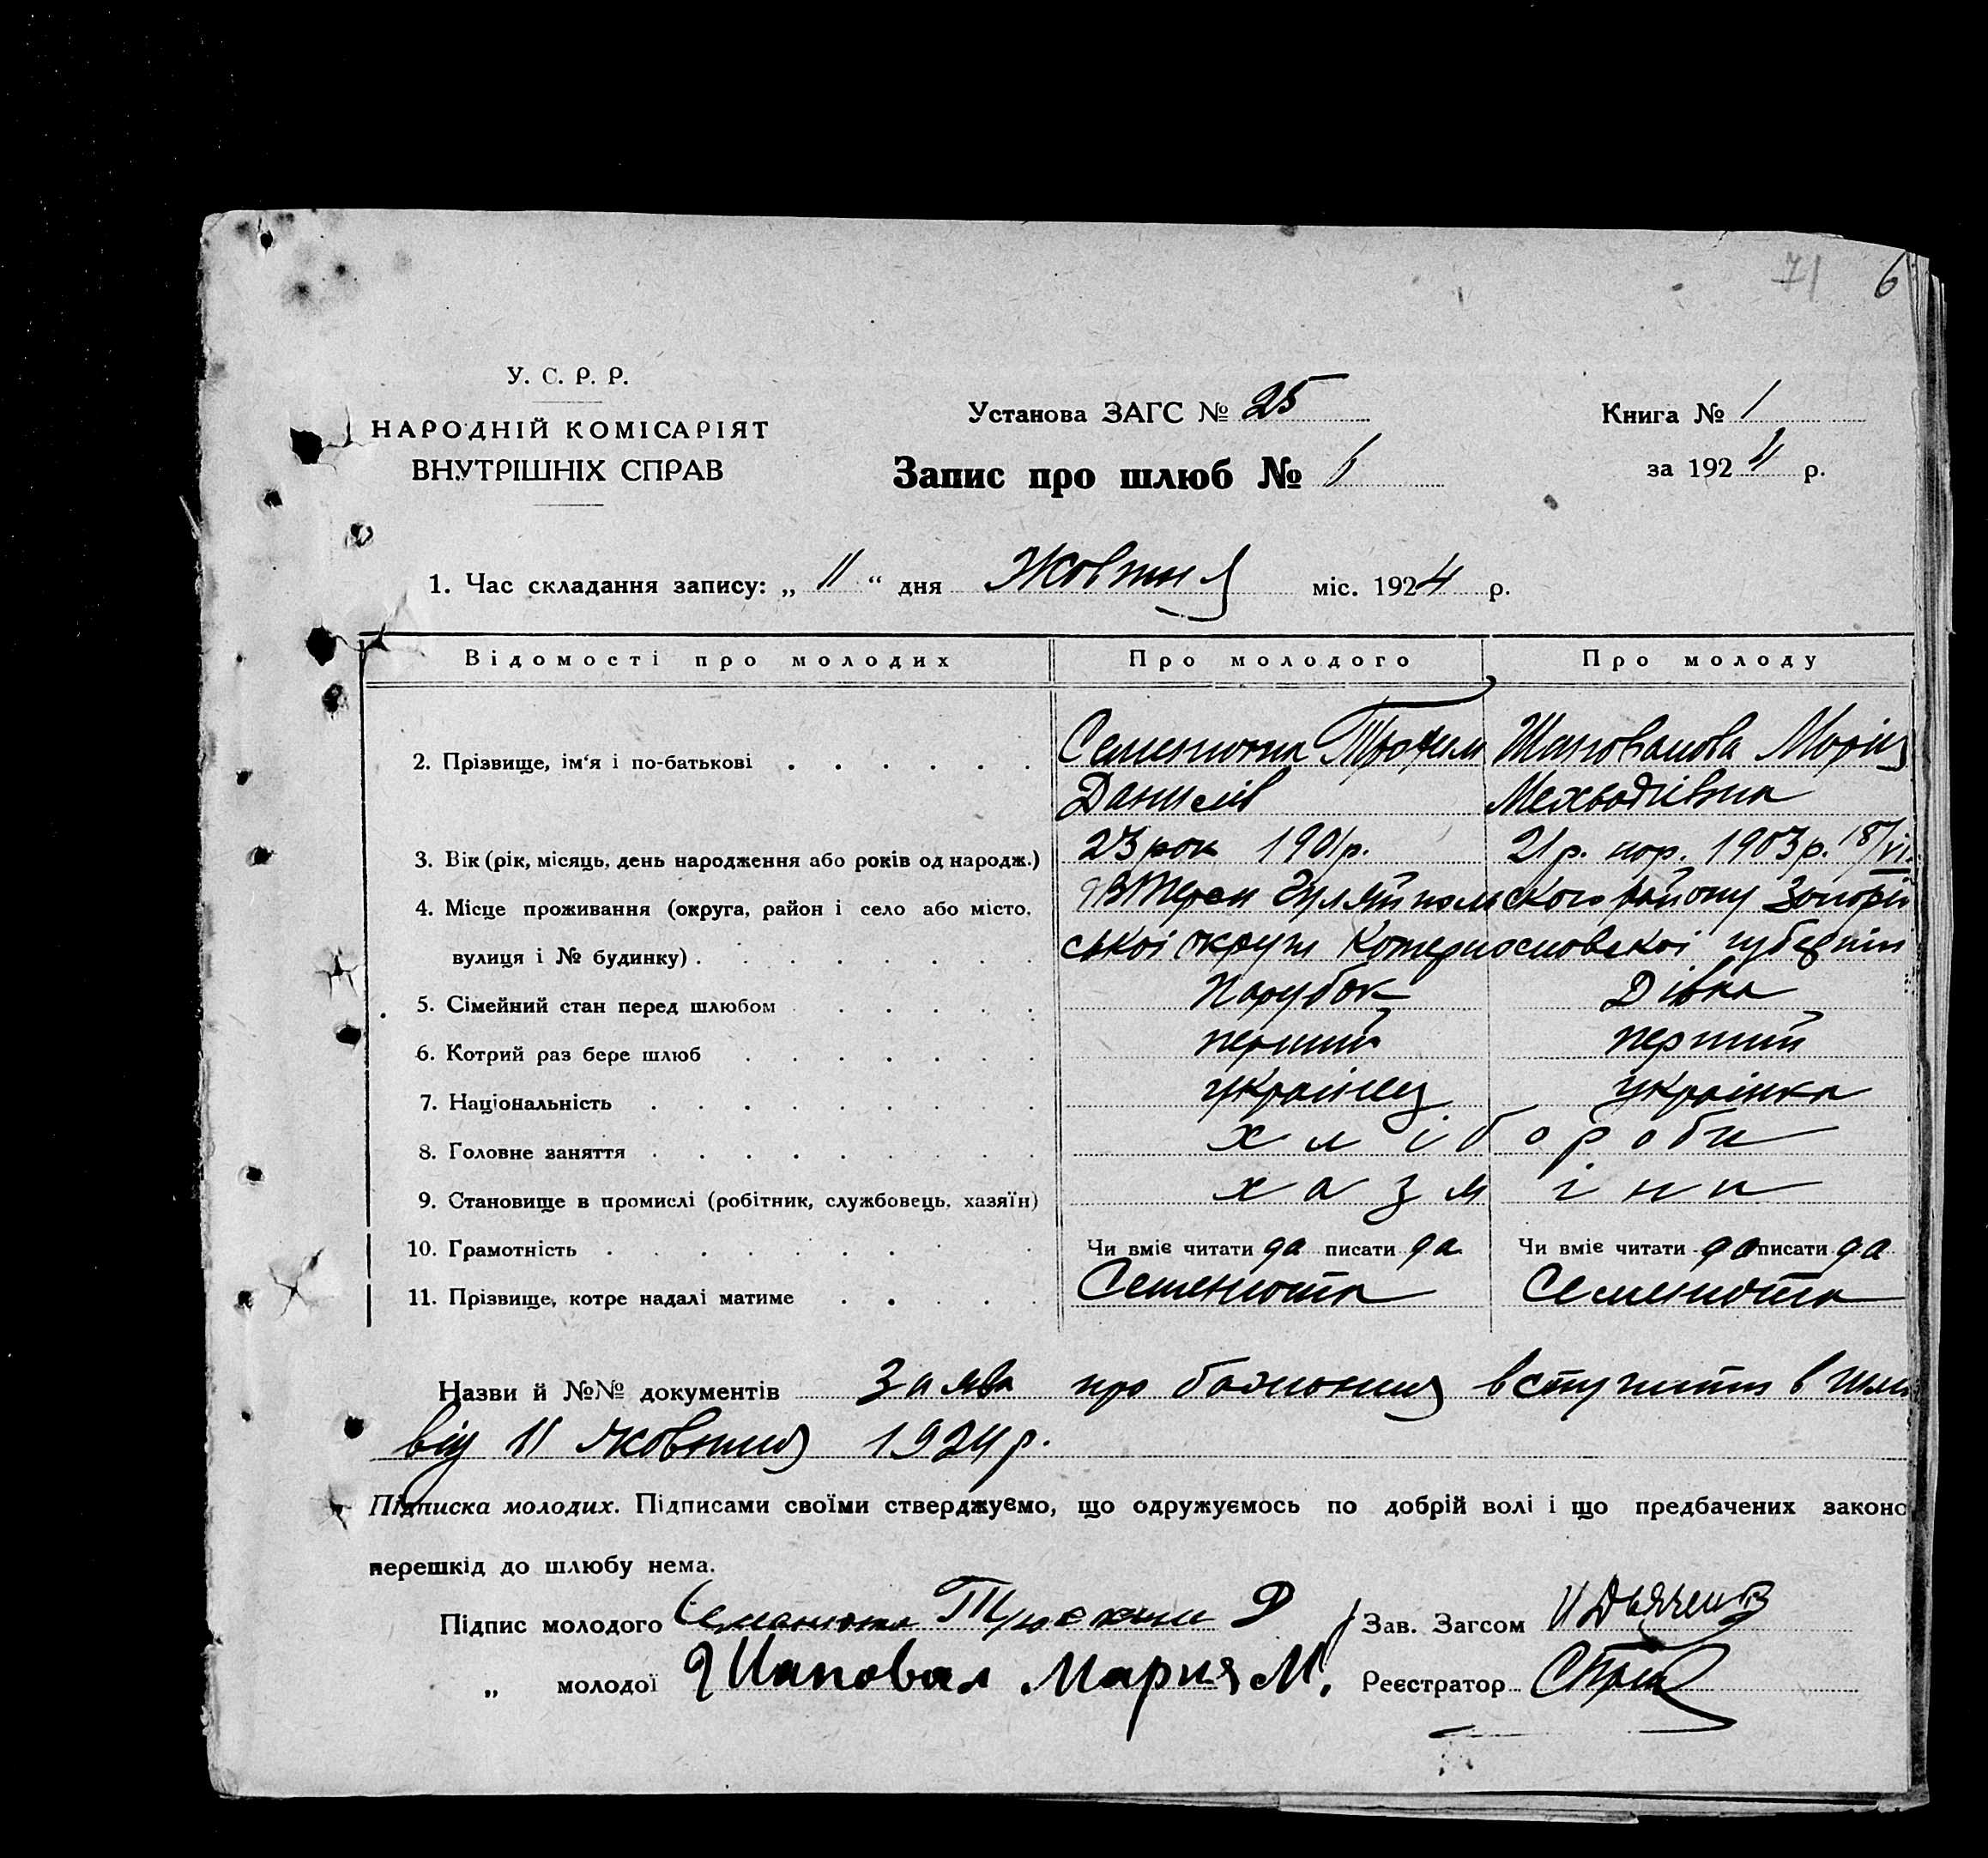 71 6
У. С. Р. Р.
НАРОДНІЙ КОМІСАРІЯТ
ВНУТРІШНІХ СПРАВ
Установа ЗАГС № 25
Запис про шлюб № 6
Книга № 1
за 1924 р.
1. Час складання запису: „ 11 “ дня Жовтня міс. 1924 р.
Відомості про молодих Про молодого Про молоду
2. Прізвище, ім'я і по-батькові Семенюта Трохим Шаповалова Марія
Данилів
3. Вік (рік, місяць, день народження або років од народж.) 23 рок 1901р. 21р. нар. 1903р. 18/VI
4. Місце проживання (округа, район і село або місто, Гуляйпольского району Запоріж
вулиця і № будинку) ської округи Катеринославскої губернії
5. Сімейний стан перед шлюбом Парубок Дівка
6. Котрий раз бере шлюб перший перший
7. Національність українец українка
8. Головне заняття хлібороби
9. Становище в промислі (робітник, службовець, хазяїн) хазяіни
10. Грамотність Чи вміє читати да писати да Чи вміє читати да писати да
11. Прізвище, котре надалі матиме Семенюта Семенюта
Назви й №№ документів Заява про бажання вступити в шлю
від 11 жовтня 1924р.
Підписка молодих. Підписами своїми стверджуємо, що одружуємось по добрій волі і що предбачених законо
перешкід до шлюбу нема.
Підпис молодого Семанюта Д Зав. Загсом И Дьяченко
„ молодої Шаповал Мария М. Реєстратор